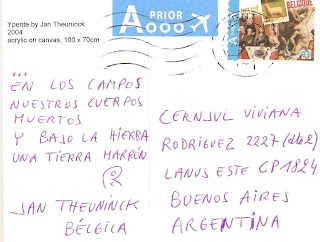 Yperite by Jan Theuninck
2004
acrylic on canvas, 100 x 70cm
A PRIOR
BELGIQUE
...
EN LOS CAMPOS
NUESTROS CUERPOS
MUERTOS
Y BAJO LA HIERBA
UNA TIERRA MARRÓN
JAN THEUNINCK
BÉLGICA
CERNJUL VIVIANA
RODRIGUEZ 2227 (dto2)
LANUS ESTE CP 1824
BUENOS AIRES
ARGENTINA